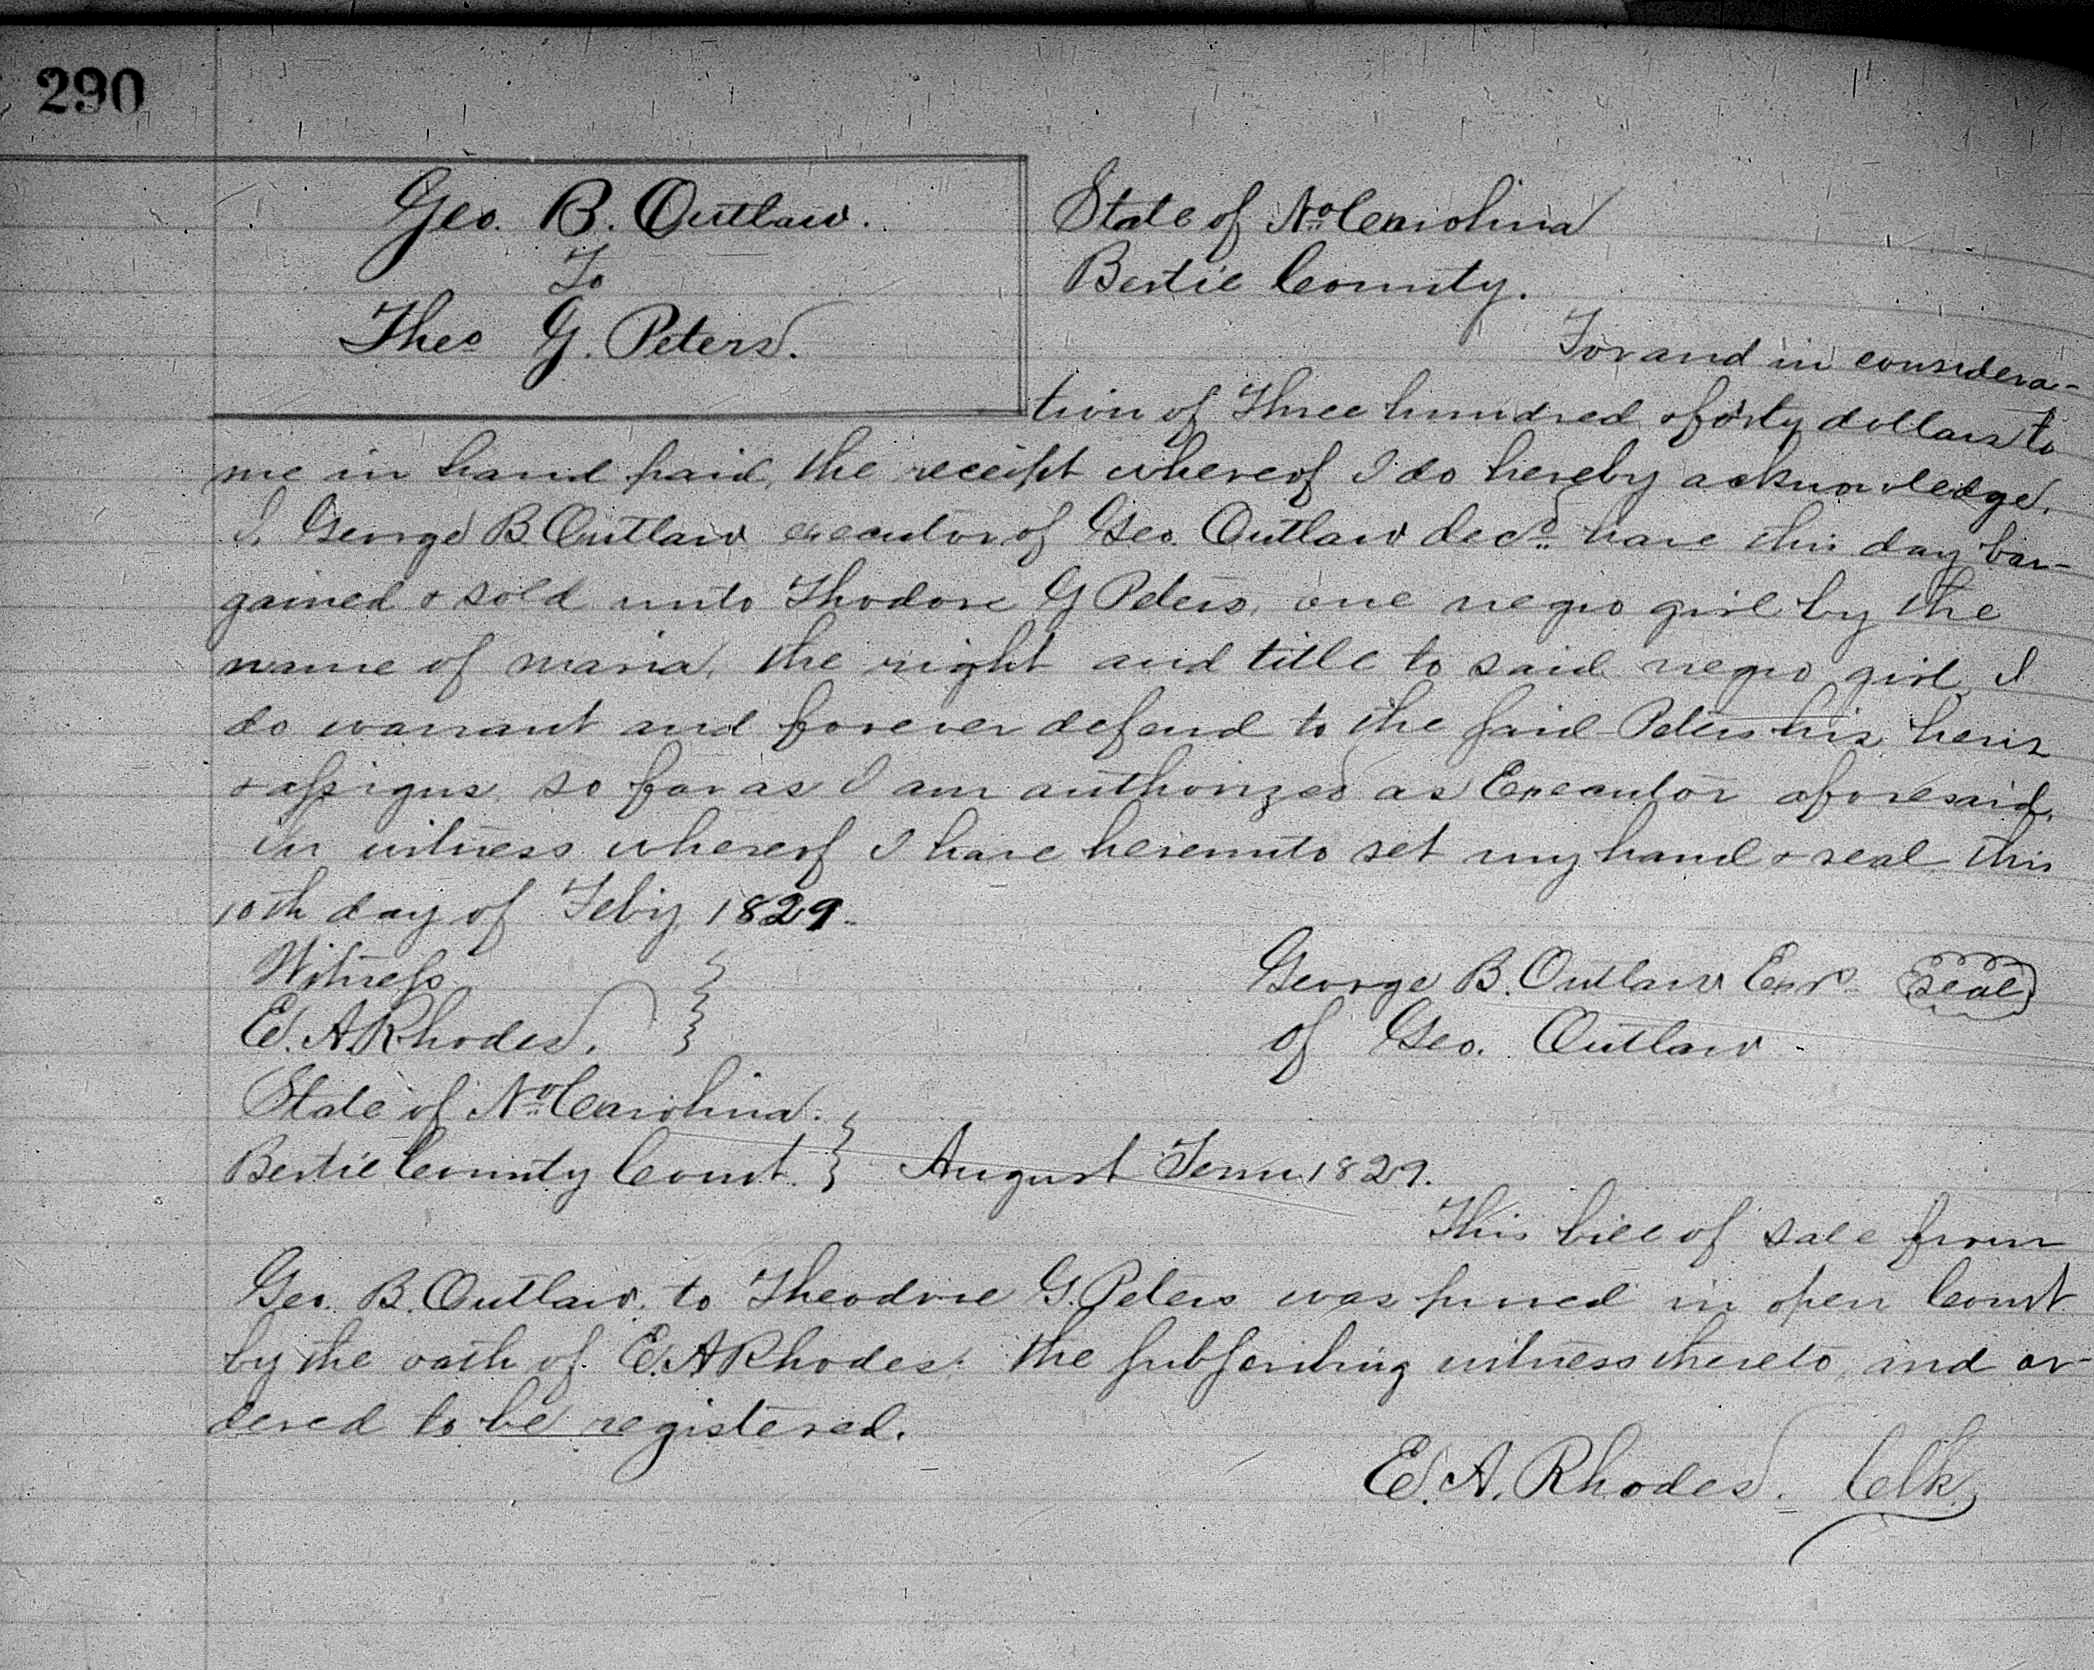 290
Geo. B. Outlaw.
To
Theo G. Peters.
State of No Carolina
Bertie County.
For and in considera-
tion of Three hundred & forty dollars to
me in hand paid, the receipt whereof I do hereby acknowledge,
I, George B Outlaw executor of Geo. Outlaw decd. have this day bar-
gained & sold unto Thodore G Peters, one negro girl by the
name of maria, the right and title to said negro girl I
do warrant and forever defend to the said Peters his heirs
& assigns, so far as I am authorized as Executor aforesaid,
in witness whereof I have hereunto set my hand & seal this
10th day of Feby 1829.
Witness
E. A Rhodes.
George B. Outlaw Exr. Seal
of Geo. Outlaw
State of No Carolina.
Bertie County Court. August Term 1829.
This bill of sale from
Geo. B. Outlaw. to Theodore G. Peters was proved in open Court
by the oath of E. A Rhodes, the subscribing witness thereto, and or-
dered to be registered.
E. A. Rhodes. Clk